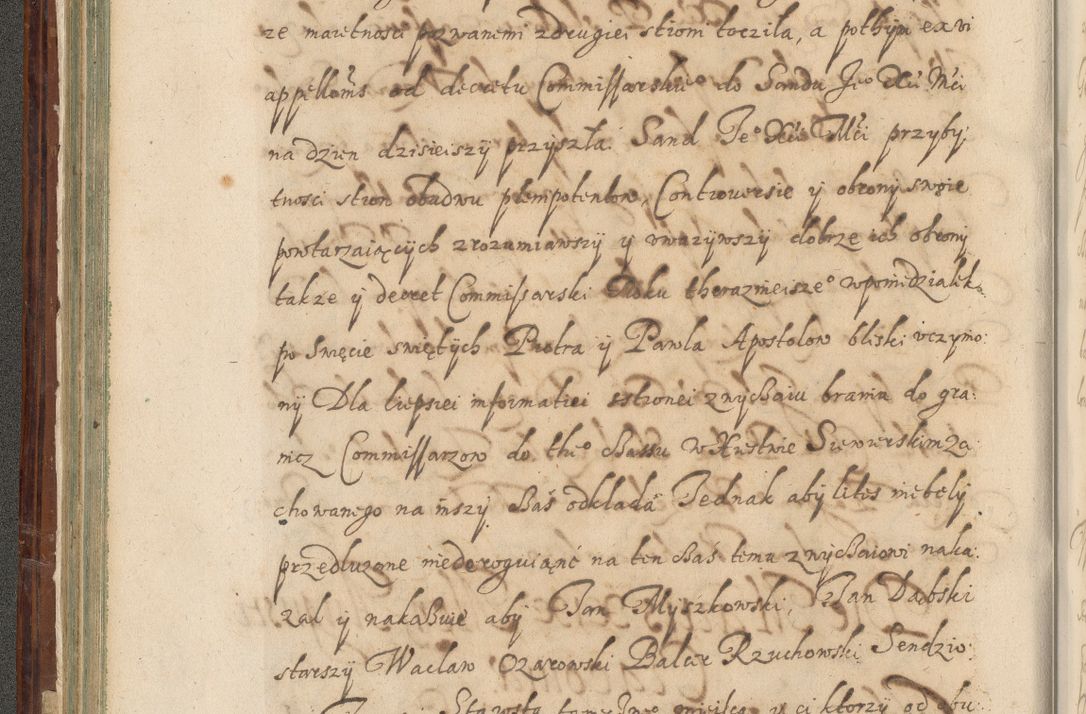 ze maietnosci pozwanemi zdrugiei stroni toczila, a pothym ea vi
appellõnis od decretu Commissarskie⁰ do Sandu Je⁰ Xči Mči
na dzien dzisieiszÿ przyszła. Sand Je⁰ Xči Mči przyby
tnosci stron obudwu plenipotentow, Controversie ÿ obronÿ swoie
powtarzaiącÿch zrozumiawszÿ ÿ uwazÿwszÿ dobrze ich obronÿ
takze ÿ decret Commissarski Roku therazneisze⁰ wponidzialek
po Swięcie swiętÿch Piotra ÿ Pawla Apostolow bliski uczyno
nÿ Dla liepsiei informatiei zstronei znyczaiu brania do gra
nicz Commissarzow do the⁰ czassu w Xiestwie Siewierskim za
chowanego na inszÿ czas odklada Jednak abÿ lites niebelÿ
przedluzone niederoguiąnc na ten czas temu znyczaiowi naka
zal ÿ nakazuie abÿ Jan Myszkowski, Jan Dąbski
starszÿ Waclaw Ozarowski Balcer Rzuchowski Sendzio
Starosta tamecznego mieisca, ÿ ci ktorzÿ od obu